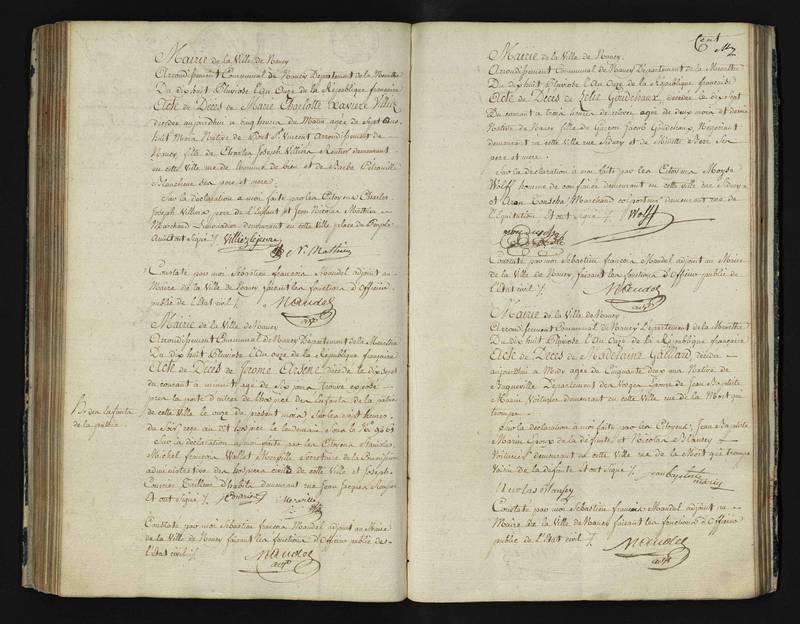 Mairie de la Ville de Nancy
Arrondissement Communal de Nancy Département de la Meurthe
Du dix huit Pluviose l'An Onze de la République française
Acte de Décès de Marie Charlotte Xaviere Villiez
décédée aujourd'hui a cinq heures du Matin agée de Sept ans
huit Mois Native de Pont St Vincent Arrondissement de
Nancy, fille de Charles Joseph Villiez Rentier demeurant
en cette Ville rue de l'homme de bien et de Barbe
Blancheur ses pere et mere.
Sur la déclaration a moi faite par les Citoyens Charles
Joseph Villiez pere de l'Enfant et Jean Nicolas Mathieu
Marchand Limonadier demeurant en cette Ville place du Peuple
Qui ont Signé /. Villiez
J. N. Mathieu
Constaté par moi Sebastien françois Mandel adjoint au
Maire de la Ville de Nancy faisant les fonctions d'Officier
public de l'Etat civil /.
Mandel
adjt
Mairie de la Ville de Nancy
Arrondissement Communal de Nancy Département de la Meurthe
Du dix huit Pluviose l'An Onze de la République française
Acte de Décès de Jerome Arsene décédé le dix Sept
du courant a minuit agé de Six jours Trouvé exposé
pres la porte d'entrée de l'hospice des Enfants de la patrie
de cette Ville le onze du présent mois Sur les Sept heures
du Soir reçu au dit hospice le lendemain Sous le No
Sur la déclaration a moi faite par les Citoyens Stanislas
Michel françois Vallet Merville Secretaire de la Commission
administrative des hospices civils de cette Ville et Joseph
Tailleur d'habits demeurant rue Jean Jacques
Et ont Signé /.
Merville
No des Enfants
de la patrie
Constaté par moi Sebastien françois Mandel adjoint au Maire
de la Ville de Nancy faisant les fonctions d'Officier public de
l'Etat civil /.
Mandel
adjt
Cent
Mairie de la Ville de Nancy.
Arrondissement Communal de Nancy Département de la Meurthe
Du dix huit Pluviose l'An Onze de la République française
Acte de Décès de Zelie Goudchaux, décédée le dix Sept
Du courant a trois heures de relevée agée de deux mois et demi
Native de Nancy fille de Garçon Jacob Goudchaux, Négociant
demeurant en cette Ville rue et de Minette Berr Ses
pere et mere.
Sur la déclaration a moi faite par les Citoyens Moyse
Wolff homme de confiance demeurant en cette Ville rue
et Marchand colporteur demeurant rue de
l'Equitation Et ont Signé /. Wolff
Constaté par moi Sebastien françois Mandel adjoint au Maire
de la Ville de Nancy faisant les fonctions d'Officier public de
l'Etat civil /.
Mandel
adjt
Mairie de la Ville de Nancy.
Arrondissement Communal de Nancy Département de la Meurthe
Du dix huit Pluviose l'An Onze de la République française
Acte de Décès de Madelaine Galliard décédée
aujourd'hui a Midi agée de Cinquante deux ans Native de
Baqueville Département des Vosges Epouse de Jean Baptiste
Marin Voiturier demeurant en cette Ville rue de la Mort qui
trompe.
Sur la déclaration a moi faite par les Citoyens Jean Baptiste
Marin Epoux de la défunte et Nicolas
Voituriers demeurant en cette Ville rue de la Mort qui trompe
Voisin de la défunte Et ont Signé /.
jean baptiste
marin
Nicolas
Constaté par moi Sebastien françois Mandel adjoint au
Maire de la Ville de Nancy faisant les fonctions d'Officier
public de l'Etat civil /.
Mandel
adjt